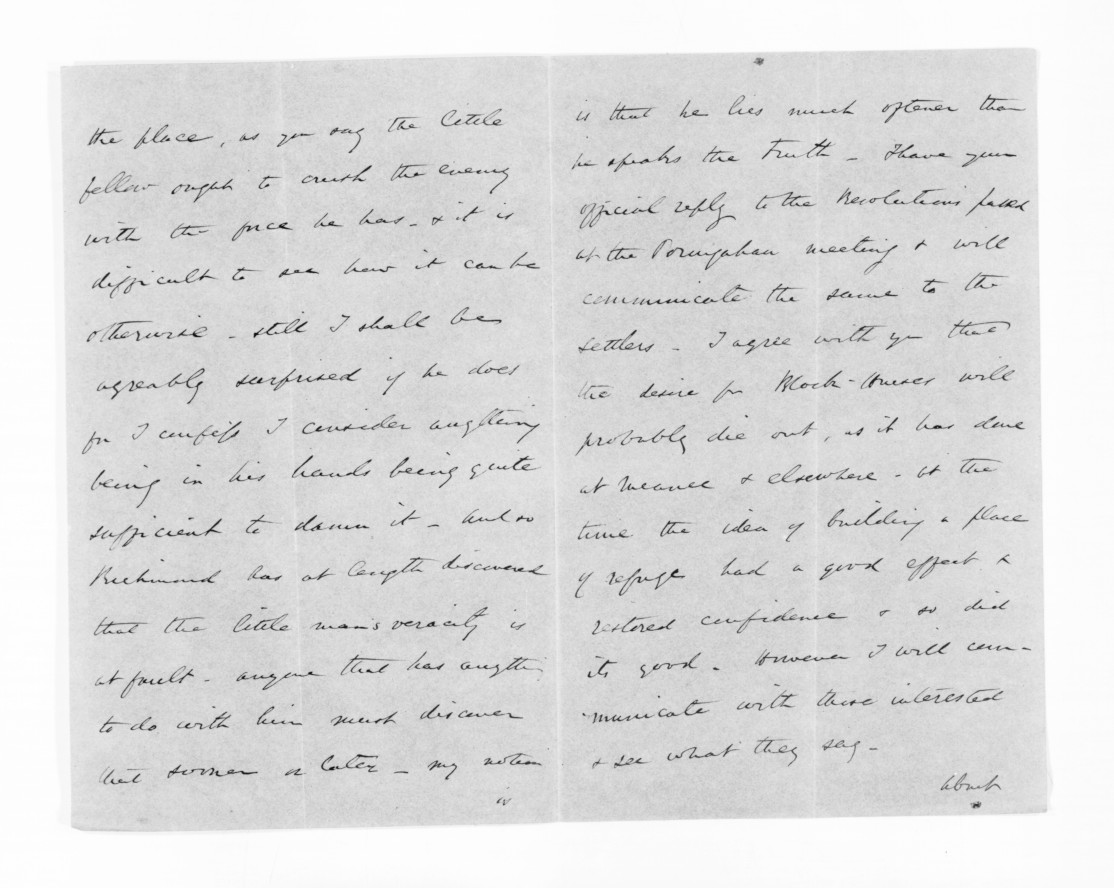 the place, as you say the little
fellow ought to crush the enemy
with the force he has - & it is
difficult to see how it can be
otherwise - still I shall be
agreably surprised if he does
for I confess I consider anything
being in his hands being quite
sufficient to damn it - and so
Richmond has at length discovered
that the little man's veracity is
at fault - anyone that has anythi
to do with him must discover
that sooner or later - my notion
is
is that he lies much oftener than
he speaks the truth - I have your
official reply to the Resolutions passed
at the Porangahau meeting & will
communicate the same to the
settlers - I agree with you that
the desire for Block-Houses will
probably die out, as it has done
at Meanee & elsewhere - at the
time the idea of building a place
of refuge had a good effect &
restored confidence & so did
its good - However I will com-
municate with those interested
& see what they say -
About